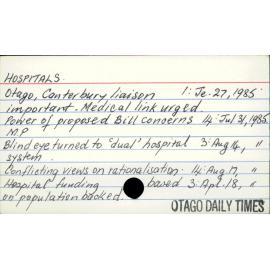 HOSPITALS.
Otago, Canterbury liaison 1: Je. 27, 1985
important - Medical link urged.
Power of proposed Bill concerns 14: Jul 31, 1985
M.P
Blind eye turned to 'dual' hospital 3: Aug 14, "
system.
Conflicting views on rationalisation. 14: Aug 17, "
Hospital funding based 3: Apl. 18, "
on population backed.
OTAGO DAILY TIMES